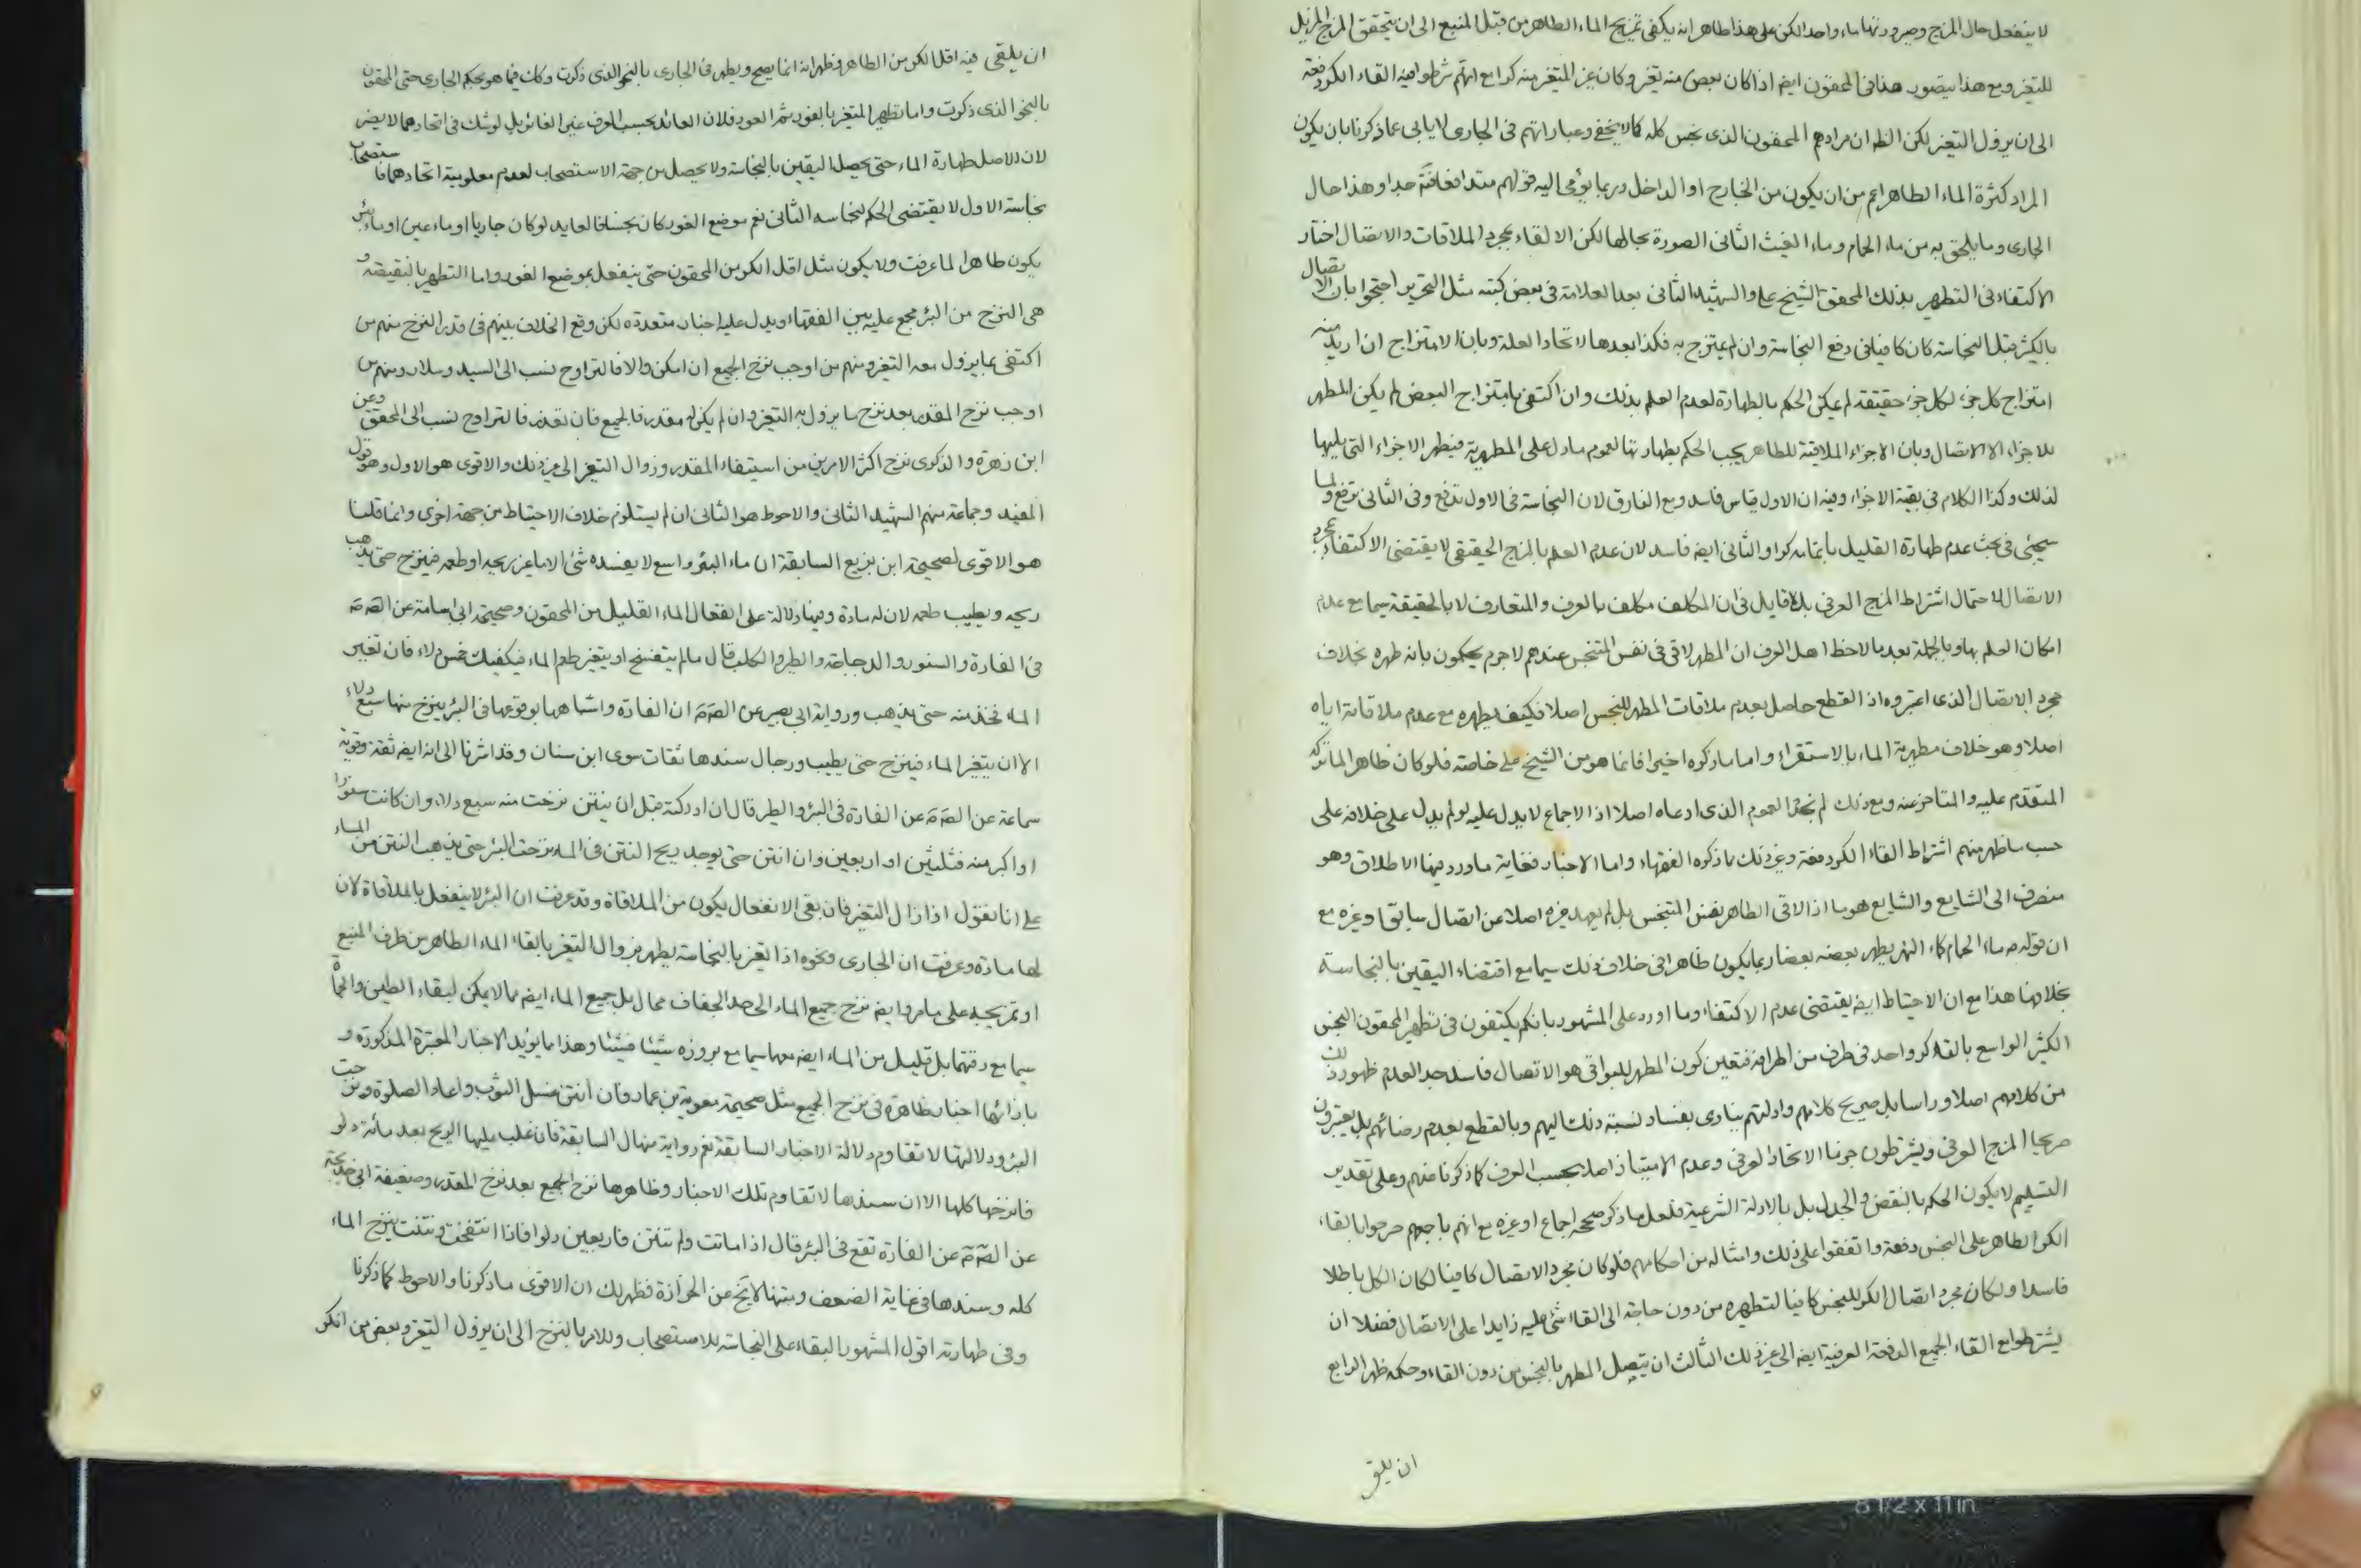 لا ينفعل حال المزج وصيرورتها ماء واحد الكن على هذا ظاهر انه يكفى تمزيج الماء الطاهر من قبل المنبع الى ان يتحقق المزج المزيل
للتغير ومع هذا يتصور هذا فى المحقون ايضا اذا كان بعض منه تغير وكان غير المتغير منه كرا مع انهم شرطوا فيه القاء الكر دفعة
الى ان يزول التغير لكن الظ ان مرادهم المحقون الذى نجس كله كما لا يخفى وعباراتهم فى الجارى لا يابى عما ذكرنا بان يكون
المراد كثرة الماء الطاهر اعم من ان يكون من الخارج او الداخل وربما يؤمى اليه قولهم متدافعا فتة جدا وهذا حال
الجارى وما يلحق به من ماء الحمام وماء الغيث الثانى الصورة بحالها لكن الالقاء بمجرد الملاقات والاتصال اختار
الاكتفاء فى التطهير بذلك المحقق الشيخ على والشهيد الثانى بعد العلامة فى بعض كتبه مثل التحرير احتجوا بان الاتصال
بالكثير قبل النجاسة كان كافيا فى دفع النجاسة وان لم يمتزج به فكذا بعدها لاتحاد العلة وبان الامتزاج ان اريد منه
امتزاج كل جزء لكل جزء حقيقة لم يمكن الحكم بالطهارة لعدم العلم بذلك وان اكتفى بامتزاج البعض لم يكن المطهر
للاجزاء الا الاتصال وبان الاجزاء الملاقية للطاهر يجب الحكم بطهارتها لعموم ما دل على المطهرية فيطهر الاجزاء التى يليها
لذلك وكذا الكلام فى بقية الاجزاء وفيه ان الاول قياس فاسد ومع الفارق لان النجاسة فى الاول تدفع وفى الثانى ترفع ولما
سيجئ فى بحث عدم طهارة القليل باتمامه كرا والثانى ايضا فاسد لان عدم العلم بالمزج الحقيقى لا يقتضى الاكتفاء بمجرد
الاتصال لاحتمال اشتراط المزج العرفى بل لا قايل فى ان المكلف مكلف بالعرف والمتعارف لا بالحقيقة سيما مع عدم
امكان العلم بها وبالجملة بعد ما لاحظ اهل العرف ان المطهر لاقى فى نفس المتنجس عندهم لا جرم يحكمون بانه طهره بخلاف
مجرد الاتصال الذى اعتبروه اذ القطع حاصل بعدم ملاقات المطهر للنجس اصلا فكيف يطهره مع عدم ملاقاته اياه
اصلا وهو خلاف مطهرية الماء بالاستقراء واما ما ذكروه اخيرا فانما هو من الشيخ على خاصة فلو كان ظاهرا لما تركه
المتقدم عليه والمتاخر عنه ومع ذلك لم نجد العموم الذى ادعاه اصلا اذ الاجماع لا يدل عليه لو لم يدل على خلافه على
حسب ما ظهر منهم اشتراط القاء الكر دفعة وغير ذلك مما ذكره الفقهاء واما الاخبار فغاية ما ورد فيها الاطلاق وهو
منصرف الى الشايع والشايع هو ما اذا لاقى الطاهر نفس المتنجس بل لم يعهد غيره اصلا عن اتصال سابق او غيره مع
ان قوله ع ماء الحمام كماء النهر يطهر بعضه بعضا ربما يكون ظاهرا فى خلاف ذلك سيما مع اقتضاء اليقين بالنجاسة
بخلافها هذا مع ان الاحتياط ايضا يقتضى عدم الاكتفاء وما اورد على المشهور بانكم يكتفون فى تطهير المحقون النجس
الكثير الواسع بالقاء كر واحد فى طرف من اطرافه فتعين كون المطهر للبواقى هو الاتصال فاسد جدا لعدم ظهور ذلك
من كلامهم اصلا وراسا بل صريح كلامهم وادلتهم ينادى بفساد نسبة ذلك اليهم وبالقطع بعدم رضائهم بل يعتبرون
صريحا المزج العرفى ويشترطون جزما الاتحاد العرفى وعدم الامتياز اصلا بحسب العرف كما ذكرنا عنهم وعلى تقدير
التسليم لا يكون الحكم بالنقض والجدل بل بالادلة الشرعية فلعل ما ذكر صحيح اجماع او غيره مع انهم باجمعهم صرحوا بالقاء
الكر الطاهر على النجس دفعة واتفقوا على ذلك وامثاله من احكامهم فلو كان مجرد الاتصال كافيا لكان الكل باطلا
فاسدا ولكان مجرد اتصال الكر للنجس كافيا لتطهيره من دون حاجة الى القاء شئ عليه زايدا على الاتصال فضلا ان
يشترطوا مع القاء الجميع الدفعة العرفية ايضا الى غير ذلك الثالث ان يتصل المطهر بالنجس من دون القاء وحكمه ظهر الرابع
ان يلقى
ان يلقى فيه اقل الكر من الطاهر وظهر انه انما يصح ويطهر فى الجارى بالنحو الذى ذكرت وكك فيما هو بحكم الجارى حتى المحقون
بالنحو الذى ذكرت واما تطهير المتغير بالغور ثم العود فلان العائد بحسب العرف غير الغائر بل لو شك فى اتحادهما لا يضر
لان الاصل طهارة الماء حتى يحصل اليقين بالنجاسة ولا يحصل من جهة الاستصحاب لعدم معلومية اتحادهما فاستصحاب
نجاسة الاول لا يقتضى الحكم بنجاسه الثانى نعم موضع الغور كان نجسا فالعايد لو كان جاريا او ماء عين او ماء بئر
يكون طاهرا لما عرفت ولا يكون مثل اقل الكر من المحقون حتى ينفعل بموضع الغور واما التطهير بالبقية و
هى النزح من البئر مجمع عليه بين الفقهاء ويدل عليه اخبار متعددة لكن وقع الخلاف بينهم فى قدر النزح منهم من
اكتفى بما يزول معه التغير ومنهم من اوجب نزح الجميع ان امكن والا فالتراوح نسب الى السيد وسلار ومنهم من
اوجب نزح المقدر بعد نزح ما يزول به التغير وان لم يكن له مقدر فالجميع فان تعذر فالتراوح نسب الى المحقق وعن
ابن زهرة والذكرى نزح اكثر الامرين من استيفاء المقدر وزوال التغير الى غير ذلك والاقوى هو الاول وهو قول
المفيد وجماعة منهم الشهيد الثانى والاحوط هو الثانى ان لم يستلزم خلاف الاحتياط من جهة اخرى وانما قلنا
هو الاقوى لصحيحة ابن بزيع السابقة ان ماء البئر واسع لا يفسده شئ الا ما غير ريحه او طعمه فينزح حتى يذهب
ريحه ويطيب طعمه لان له مادة وفيها دلالة على انفعال الماء القليل من المحقون وصحيحة ابى اسامة عن الصم
فى الفارة والسنور والدجاجة والطير والكلب قال ما لم يتفسخ او يتغير طعم الماء فيكفيك خمس دلاء فان تغير
الماء فخذ منه حتى يذهب ورواية ابى بصير عن الصم ان الفارة واشباهها بوقوعها فى البئر ينزح منها سبع دلاء
الا ان يتغير الماء فينزح حتى يطيب ورجال سندها ثقات سوى ابن سنان وقد اشرنا الى انه ايضا ثقة وقوية
سماعة عن الصم عن الفارة فى البئر والطير قال ان ادركته قبل ان ينتن نزحت منه سبع دلاء وان كانت سنورا
او اكبر منه فثلثين او اربعين وان انتن حتى يوجد ريح النتن فى الماء نزحت البئر حتى يذهب النتن من الماء
على انا نقول اذا زال التغير فان بقى الانفعال يكون من الملاقاة وقد عرفت ان البئر لا ينفعل بالملاقاة لان
لها مادة وعرفت ان الجارى ونحوه اذا تغير بالنجاسة يطهر بزوال التغير بالقاء الماء الطاهر من طرف المنبع
او تمزيجه على ما مر وايضا نزح جميع الماء الى حد الجفاف محال بل جميع الماء ايضا مما لا يمكن لبقاء الطين والحمأة
سيما مع رقتها بل قليل من الماء ايضا معها سيما مع بروزه شيئا فشيئا وهذا مما يؤيد الاخبار المعتبرة المذكورة و
بازائها اخبار ظاهرة فى نزح الجميع مثل صحيحة معوية بن عمار فان انتن غسل الثوب واعاد الصلوة ونزحت
البئر ودلالتها لا تقاوم دلالة الاخبار السابقة نعم رواية منهال السابقة فان غلب عليها الريح بعد مائة دلو
فانزحها كلها الا ان سندها لا تقاوم تلك الاخبار وظاهرها نزح الجميع بعد نزح المقدر وضعيفة ابى خديجة
عن الصم عن الفارة تقع فى البئر قال اذا ماتت ولم تنتن فاربعين دلوا فاذا انتفخت ونتنت ينزح الماء
كله وسندها فى غاية الضعف ومتنها لا يخ عن الحزازة فظهر لك ان الاقوى ما ذكرنا والاحوط كما ذكرنا
وفى طهارته اقول المشهور البقاء على النجاسة للاستصحاب وللامر بالنزح الى ان يزول التغير وبعض من انكر